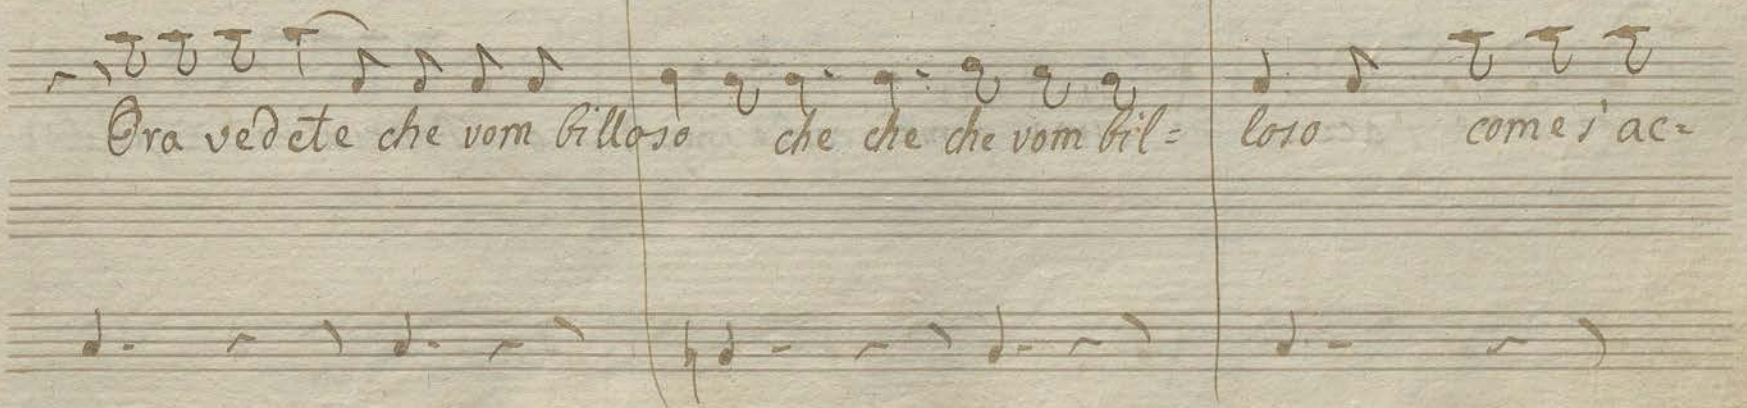 Ora vedete che vom billoso che che che vom bil= loso come s' ac=